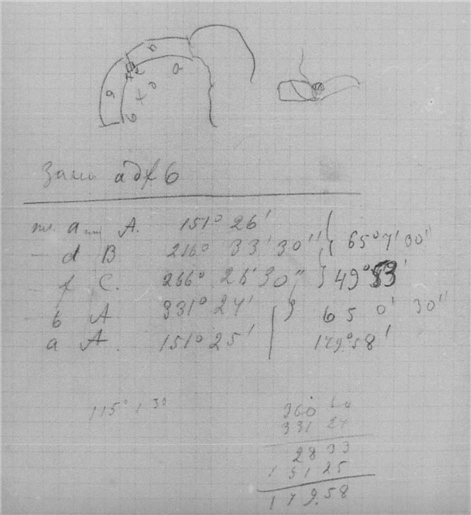 adf6
a A. 151° 26'
d B 216° 33' 30" } 65° 7' 30"
f C. 266° 26' 30" } 49° 53'
6 A 331° 24' } 65 0' 30"
a A. 151° 25' 179° 58'
115° 1 30
360 60
331 24
28 33
151 25
179.58